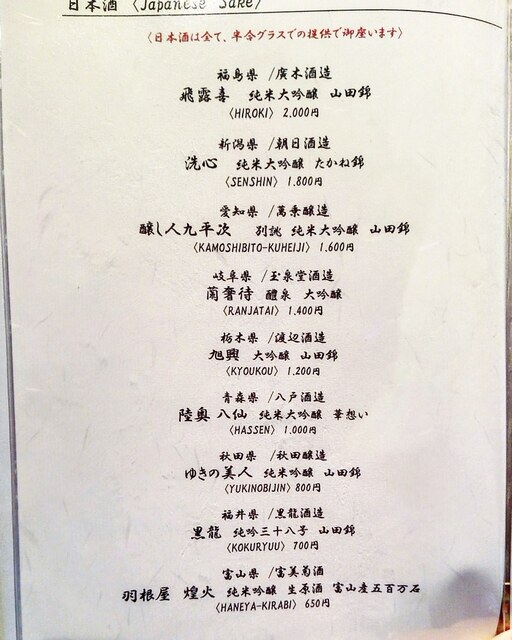 日本酒 〈Japanese Sake〉
〈日本酒は全て、半合グラスでの提供で御座います〉
福島県 /廣木酒造
飛露喜 純米大吟醸 山田錦
〈HIROKI〉 2,000円
新潟県 /朝日酒造
洗心 純米大吟醸 たかね錦
〈SENSHIN〉 1,800円
愛知県 /萬乗醸造
醸し人九平次 別誂 純米大吟醸 山田錦
〈KAMOSHIBITO-KUHEIJI〉 1,600円
岐阜県 /玉泉堂酒造
蘭奢待 醴泉 大吟醸
〈RANJATAI〉 1,400円
栃木県 /渡辺酒造
旭興 大吟醸 山田錦
〈KYOUKOU〉 1,200円
青森県 /八戸酒造
陸奥八仙 純米大吟醸 華想い
〈HASSEN〉 1,000円
秋田県 /秋田醸造
ゆきの美人 純米吟醸 山田錦
〈YUKINOBIJIN〉 800円
福井県 /黒龍酒造
黒龍 純吟三十八号 山田錦
〈KOKURYUU〉 700円
富山県 /富美菊酒
羽根屋 煌火 純米吟醸 生原酒 富山産五百万石
〈HANEYA-KIRABI〉 650円